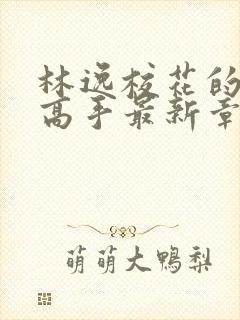 林逸校花的
高手最新章
萌萌大鸭梨